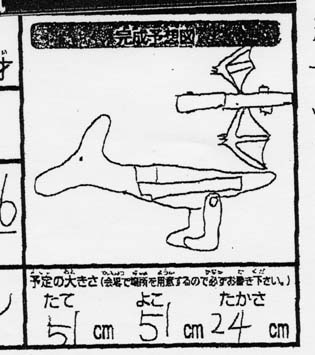 完成予想図
予定の大きさ(会場で場所を用意するので必ずお書き下さい。)
たて よこ たかさ
51 cm 51 cm 24 cm